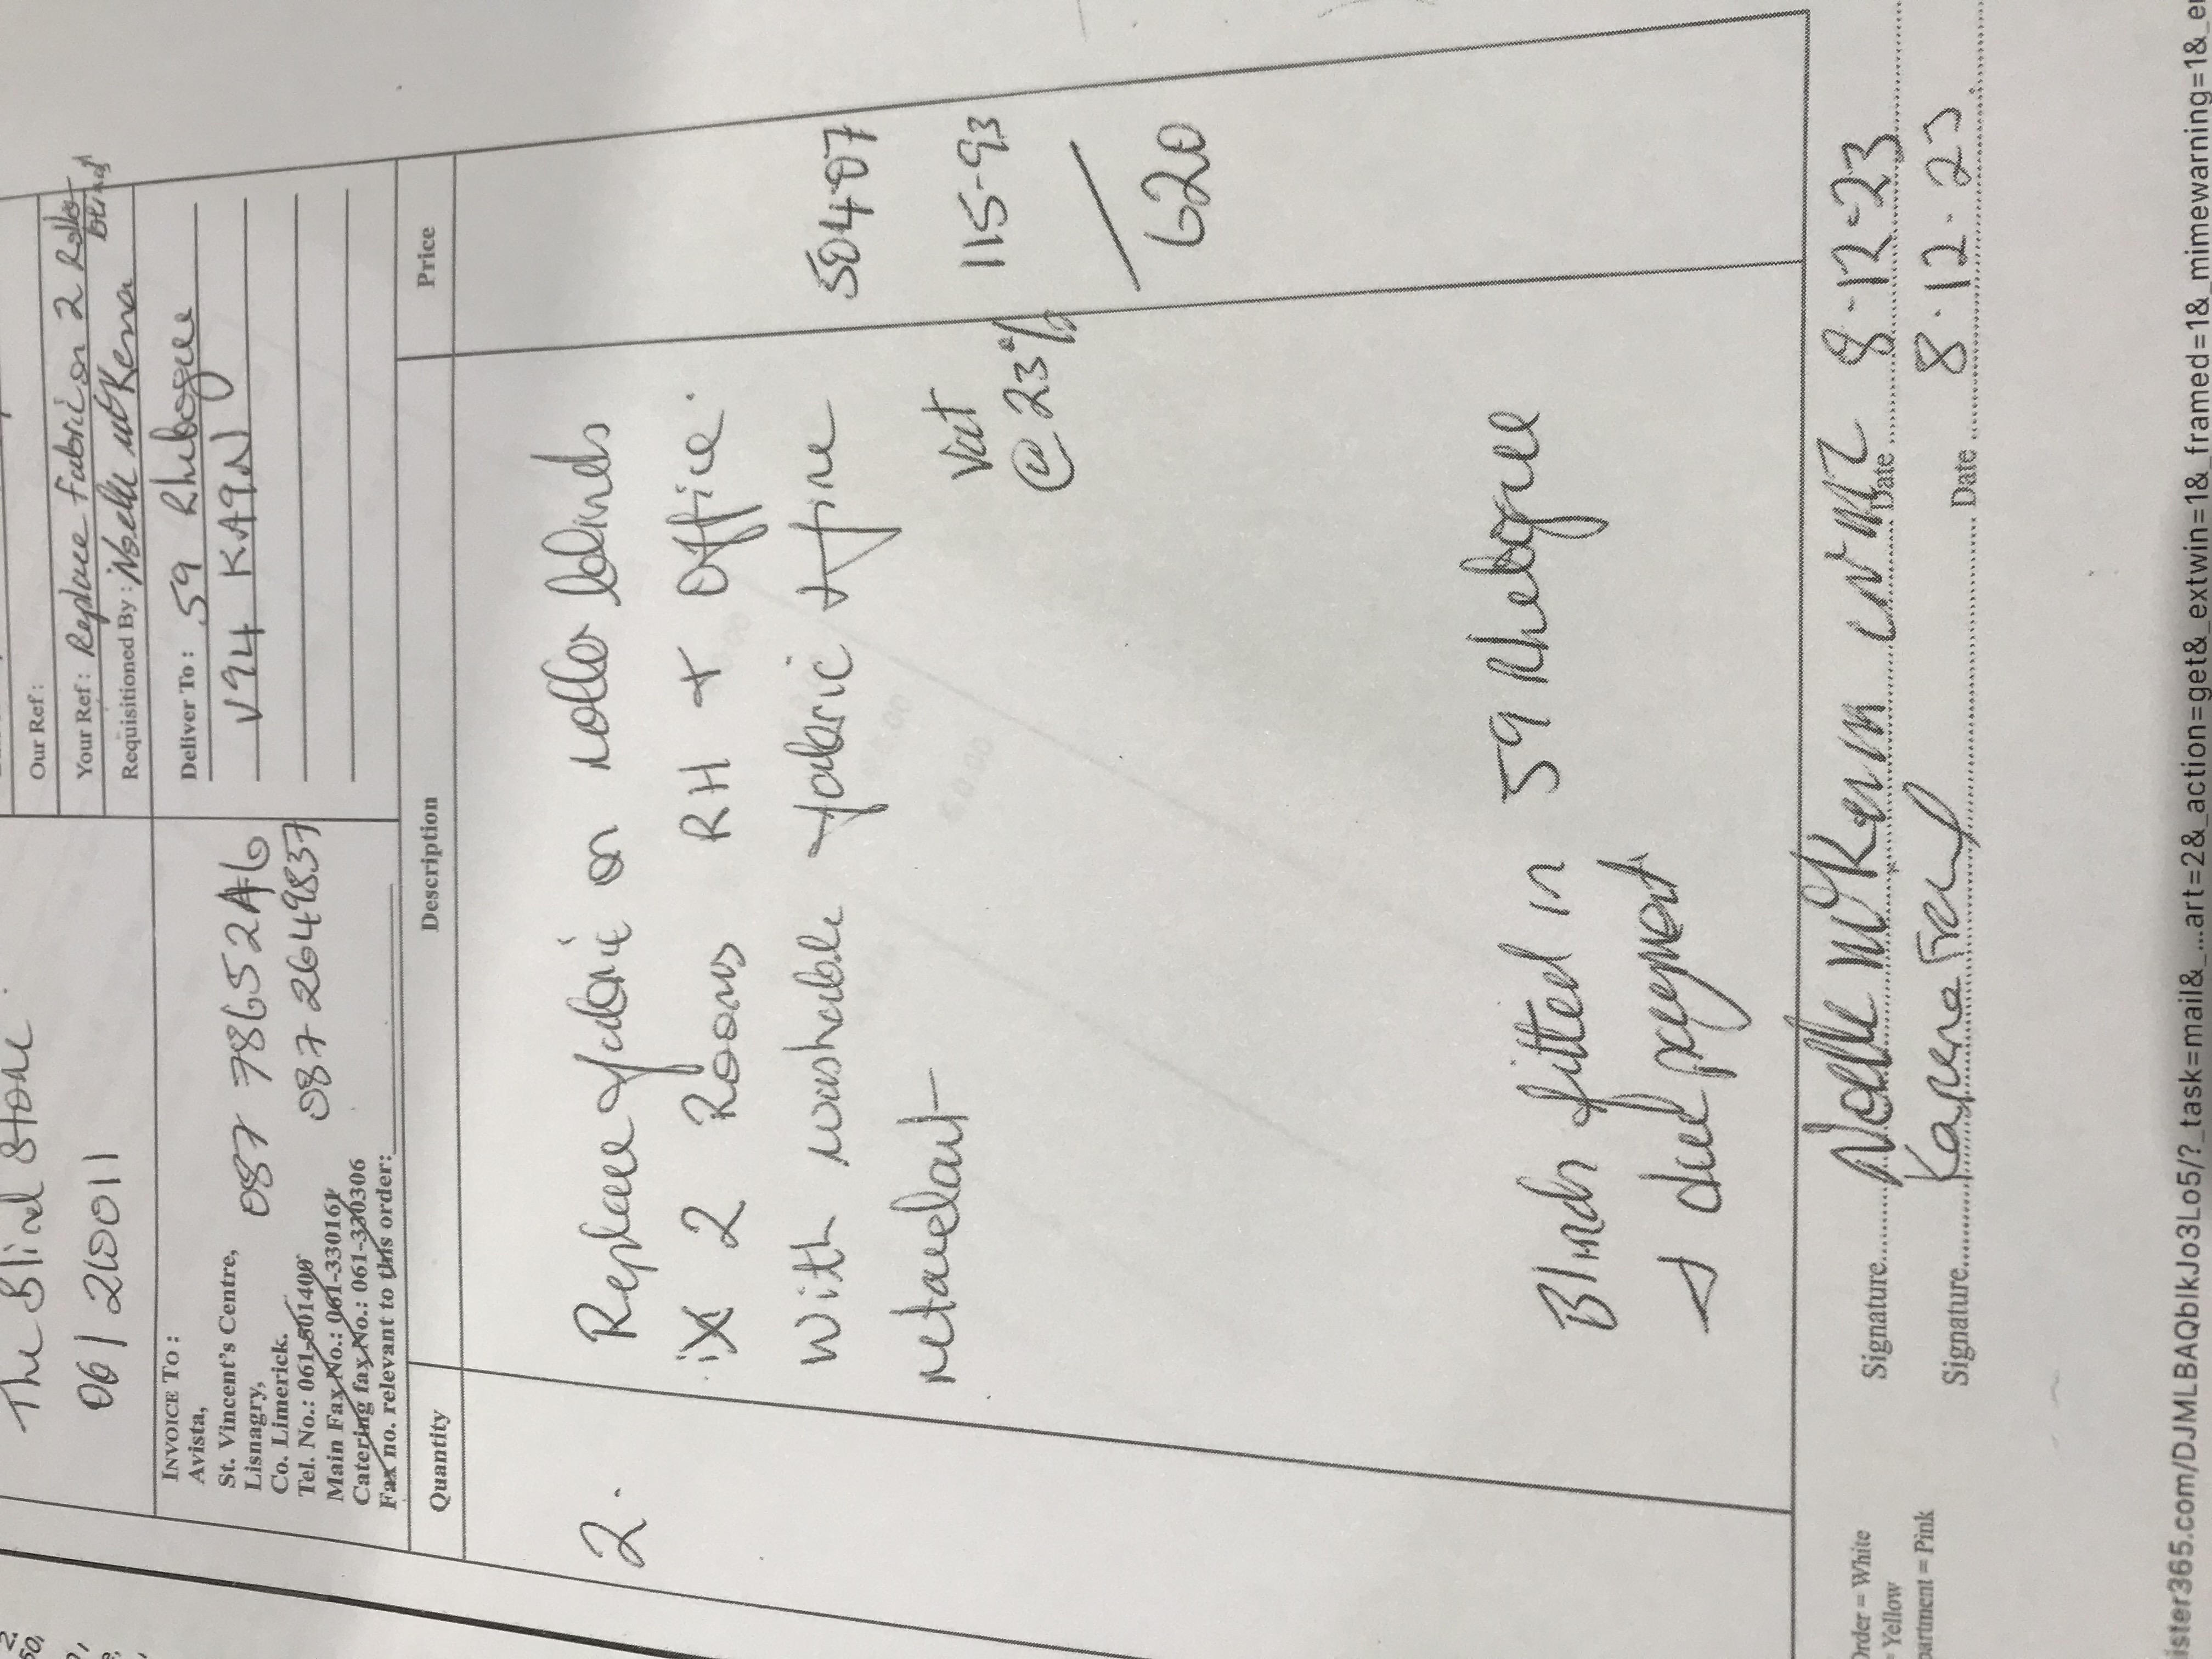 The Blind Store.
061 260011
Our Ref:
Your Ref: Replace Fabric on 2 Roller
Blinds
Requisitioned By: Noelle McKenna
INVOICE TO:
Avista,
St. Vincent's Centre,
Lisnagry,
Co. Limerick.
Tel. No.: 061-501400
Main Fax No.: 061-330161
Catering fax No.: 061-330306
Fax no. relevant to this order:
087 7865246
087 2649837
Deliver To: 59 Rhebogue
V94 KA9N
Quantity
Description
Price
2. Replace fabric on roller blinds
X 2 Rooms RH + Office.
With washable fabric + fire 504-07
retardant
Vat
@ 23% 115-93
620
Blinds fitted in 59 Rhebogue
& due payment
Signature Noelle McKenna CNM2 Date 8-12-23
Signature Karena Date 8.12.23
Order = White
= Yellow
partment = Pink
ister365.com/DJMLBAQbIkJo3Lo5/?_task=mail&_...art=2&_action=get&_extwin=1&_framed=1&_mimewarning=1&_e